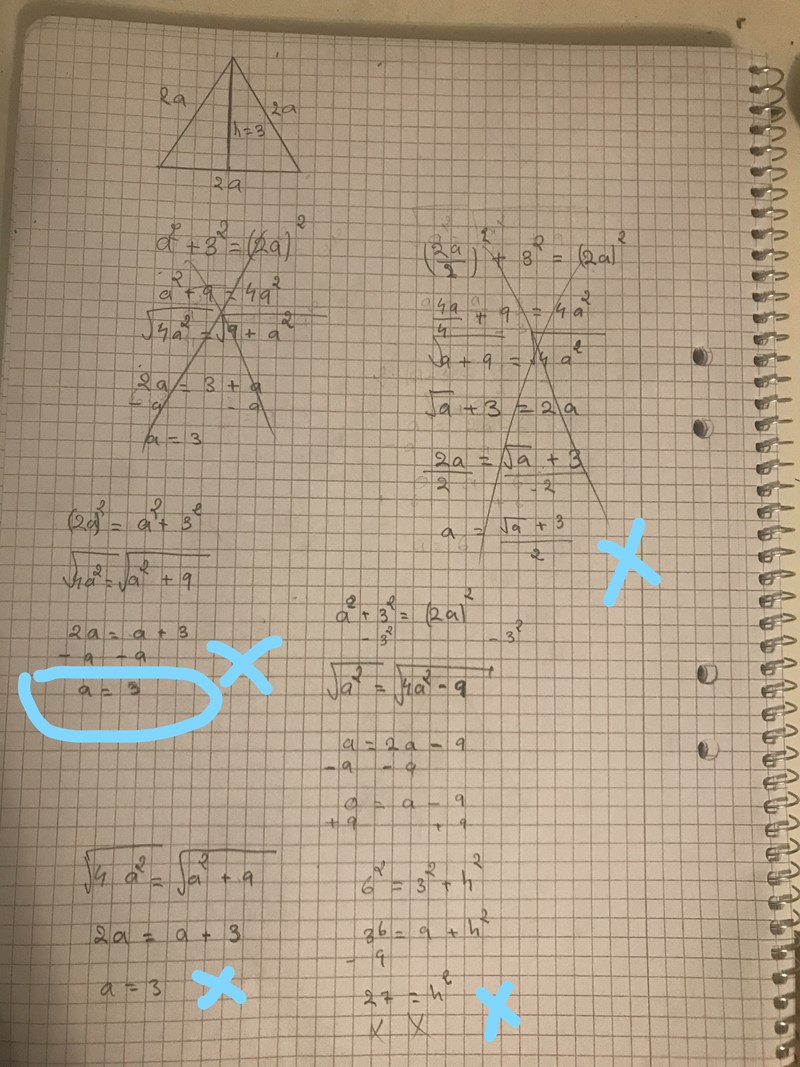 2a
2a
h=3
2a
a² + 3² = (2a)²
a² + 9 = 4a²
√4a² = √9 + a²
2a = 3 + a
- a - a
a = 3
(2a/2)² + 3² = (2a)²
4a/4 + 9 = 4a²
√a + 9 = √4a²
√a + 3 = 2a
2a/2 = √a + 3/-2
a = √a + 3/2
(2a)² = a² + 3²
√4a² = √a² + 9
2a = a + 3
- a - a
a = 3
a² + 3² = (2a)²
- 3² - 3²
√a² = √4a² - 9
a = 2a - 9
- a - a
a = a - 9
+ 9 + 9
√4 a² = √a² + 9
2a = a + 3
a = 3
6² = 3² + h²
36 = 9 + h²
- 9
27 = h²